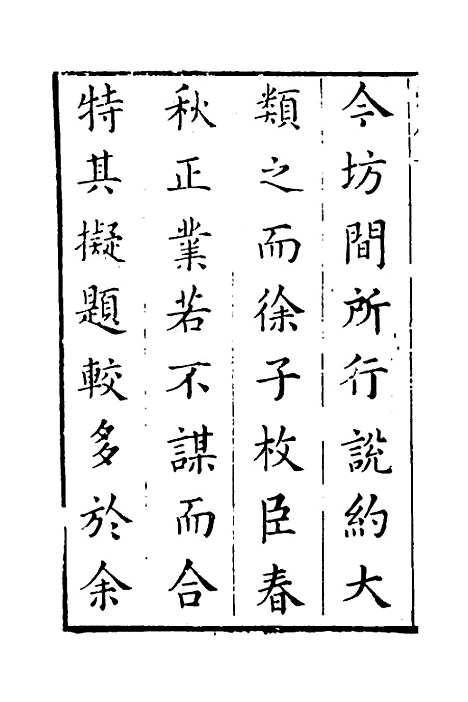 今坊間所行說約大
類之而徐子枚臣春
秋正業若不謀而合
特其擬題較多於余